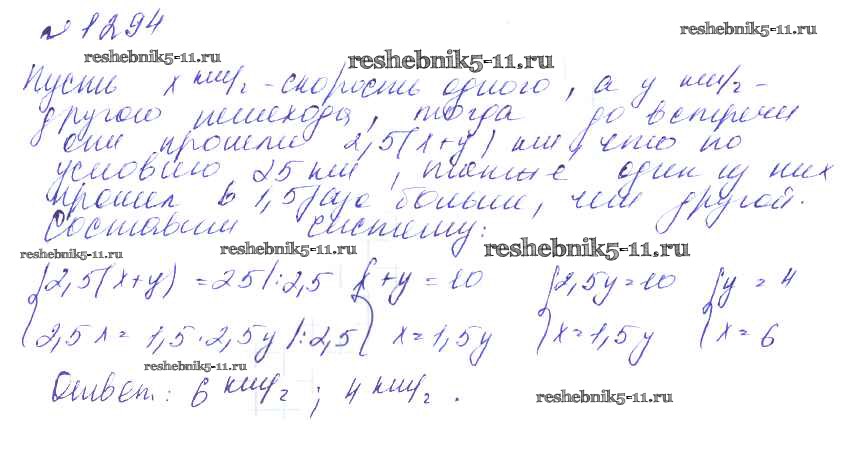 № 1294
reshebnik5-11.ru
reshebnik5-11.ru
reshebnik5-11.ru
Пусть x км/г - скорость одного, а y км/г -
другого пешехода, тогда до встречи
они прошли 2,5(x+y) км, что по
условию 25 км, также один из них
прошел в 1,5 раза больше, чем другой.
Составим систему:
reshebnik5-11.ru
reshebnik5-11.ru
reshebnik5-11.ru
{2,5(x+y) = 25 |:2,5 {x+y = 10 {2,5y=10 {y = 4
2,5x = 1,5·2,5y |:2,5 x=1,5y x=1,5y x=6
reshebnik5-11.ru
Ответ: 6 км/г ; 4 км/г .
reshebnik5-11.ru